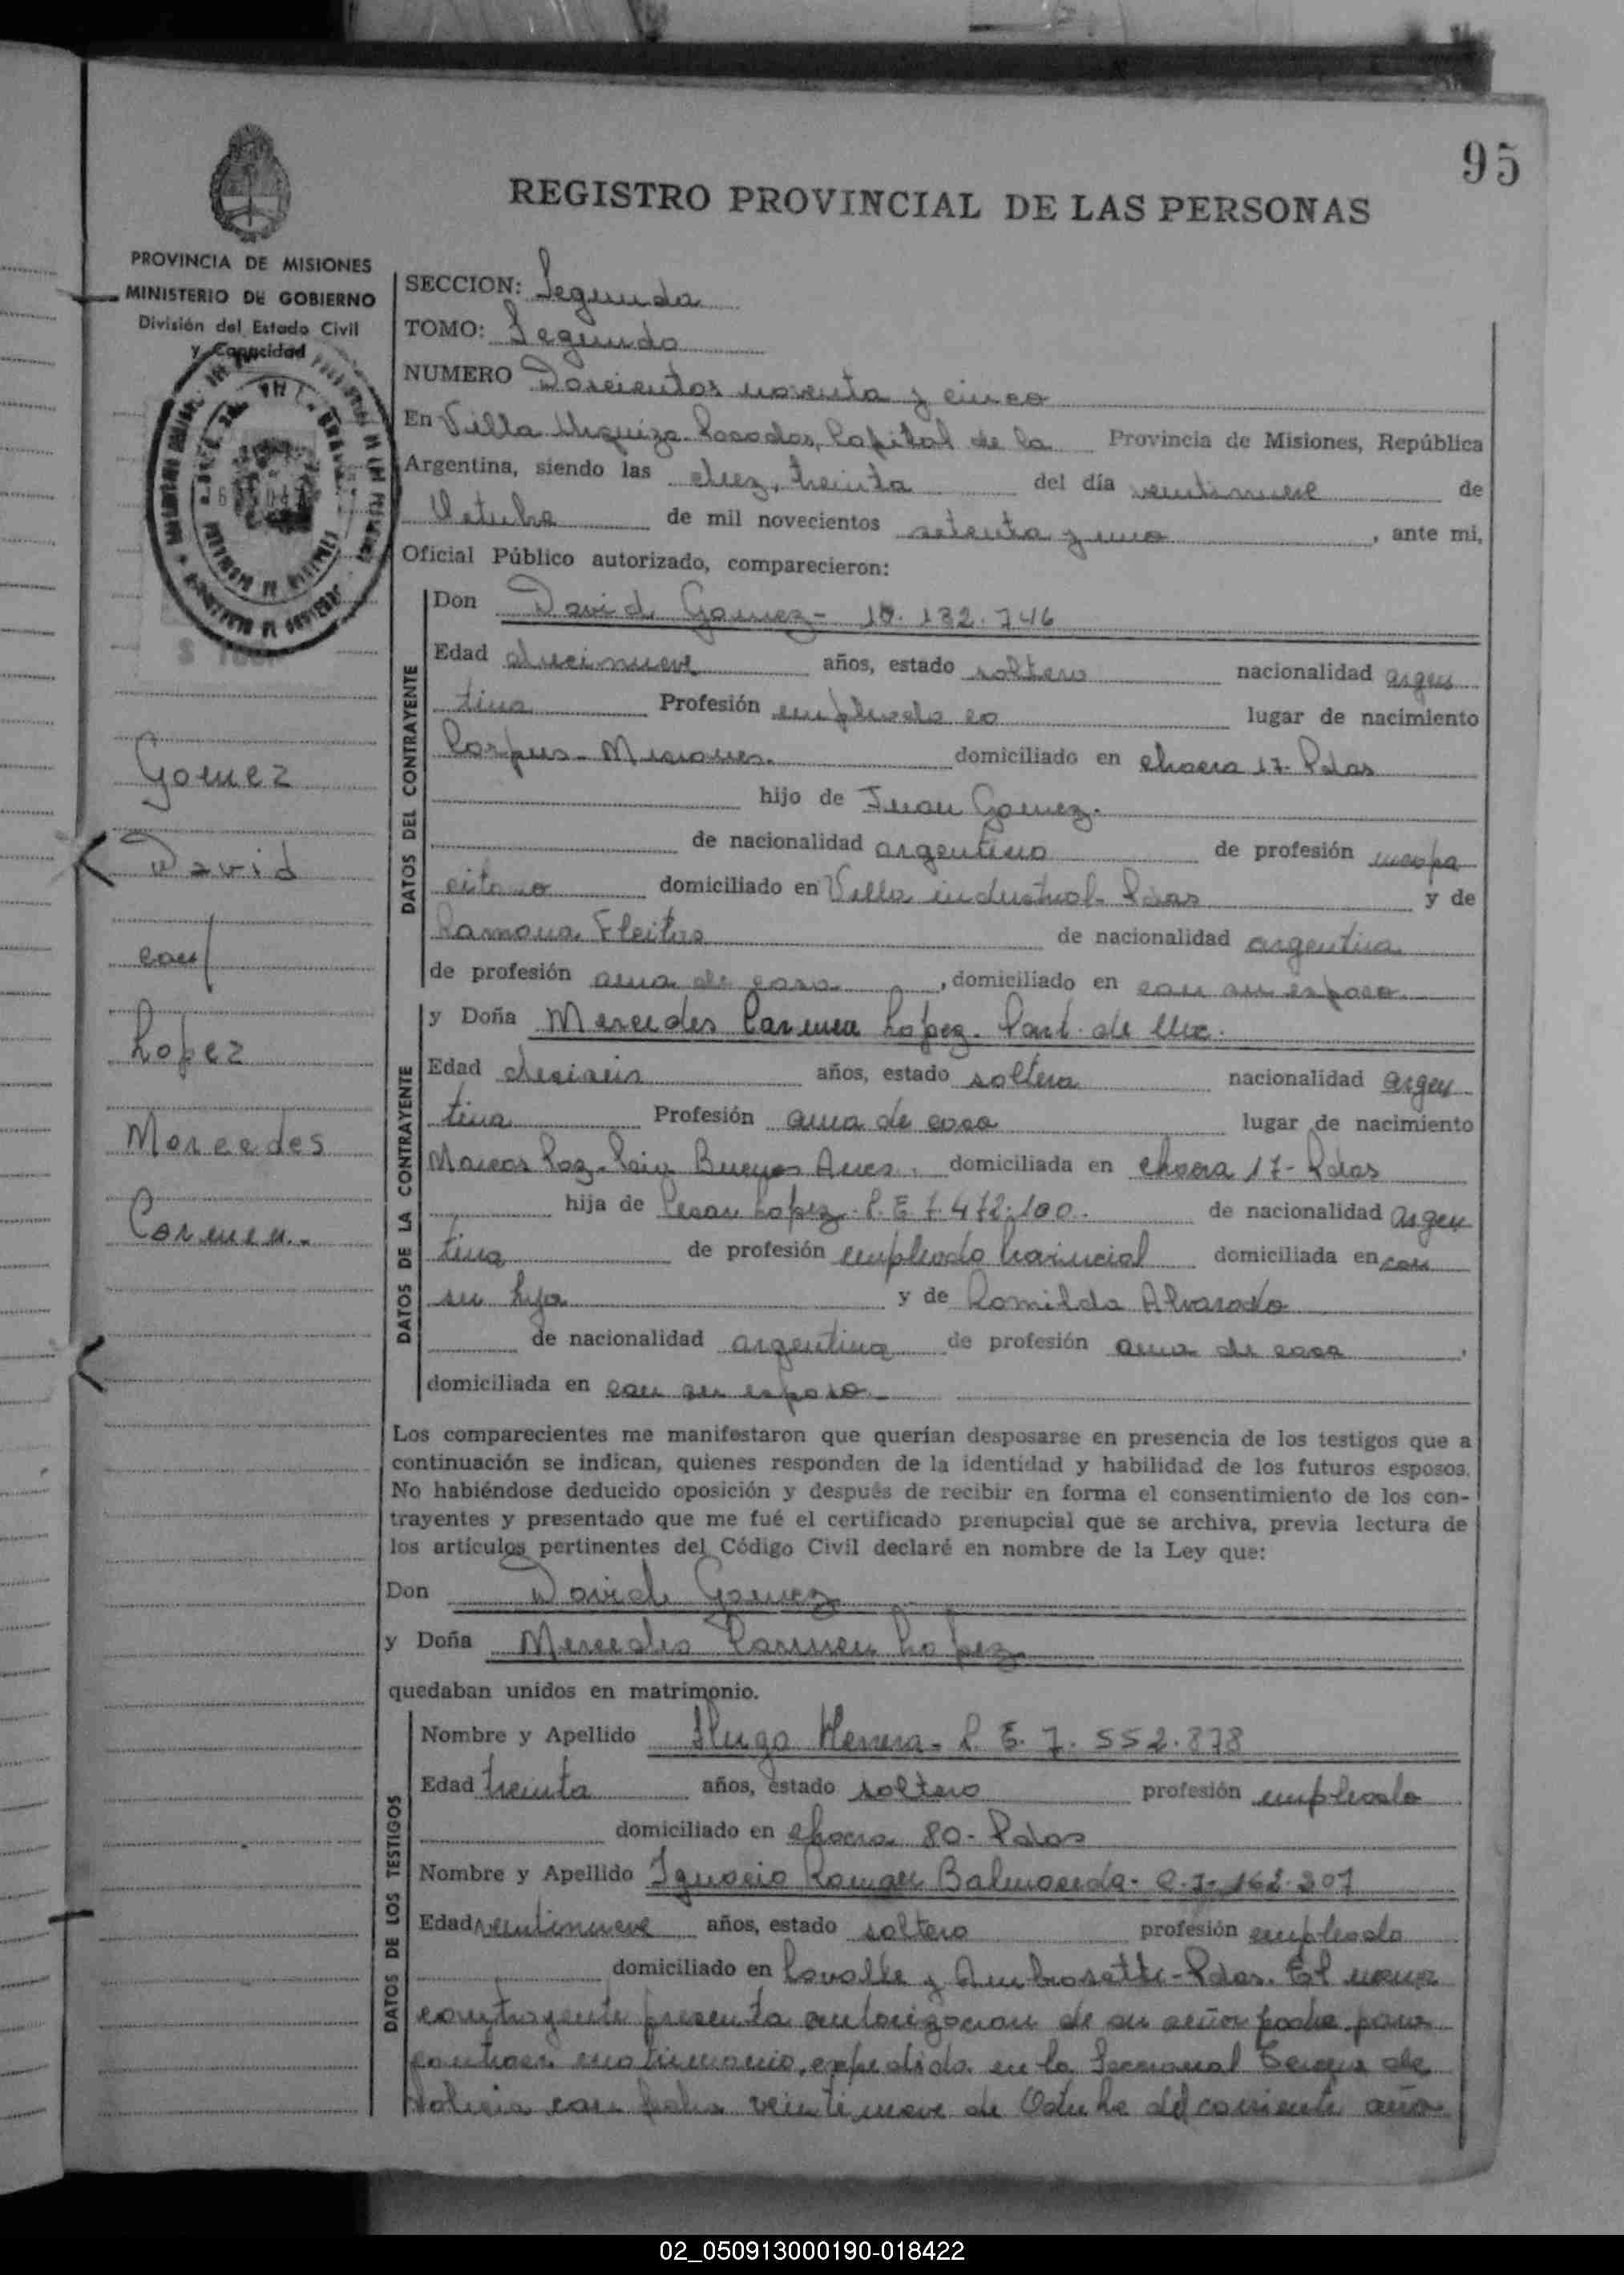 95
REGISTRO PROVINCIAL DE LAS PERSONAS
PROVINCIA DE MISIONES
MINISTERIO DE GOBIERNO
División del Estado Civil
y Capacidad
SECCION: Segunda
TOMO: Segundo
NUMERO Doscientos noventa y cinco
En Villa Urquiza Posadas, Capital de la Provincia de Misiones, República
Argentina, siendo las diez, treinta del día veintinueve de
Octubre de mil novecientos setenta y uno, ante mi,
Oficial Público autorizado, comparecieron:
DATOS DEL CONTRAYENTE
Don David Gomez - 10.132.746
Edad diecinueve años, estado soltero nacionalidad argen
tina Profesión empleado lugar de nacimiento
Corpus - Misiones. domiciliado en chacra 17 - Pdas
hijo de Juan Gomez.
de nacionalidad argentino de profesión incapa
citado domiciliado en Villa industrial - Pdas y de
Ramona Fleitas de nacionalidad argentina
de profesión ama de casa, domiciliado en con su esposo
Gomez
David
con
Lopez
Mercedes
Carmen.
DATOS DE LA CONTRAYENTE
y Doña Mercedes Carmen Lopez. Part. de
Edad dieciseis años, estado soltera nacionalidad argen
tina Profesión ama de casa lugar de nacimiento
Marcos Paz - Buenos Aires. domiciliada en chacra 17 - Pdas
hija de Cesar Lopez - 7.472.100. de nacionalidad argen
tina de profesión empleado Provincial domiciliada en con
su hija y de Romilda Alvarado
de nacionalidad argentina de profesión ama de casa,
domiciliada en con su esposo
Los comparecientes me manifestaron que querían desposarse en presencia de los testigos que a
continuación se indican, quienes responden de la identidad y habilidad de los futuros esposos.
No habiéndose deducido oposición y después de recibir en forma el consentimiento de los con-
trayentes y presentado que me fué el certificado prenupcial que se archiva, previa lectura de
los artículos pertinentes del Código Civil declaré en nombre de la Ley que:
Don David Gomez
y Doña Mercedes Carmen Lopez
quedaban unidos en matrimonio.
DATOS DE LOS TESTIGOS
Nombre y Apellido Hugo Herrera - 7.552.878
Edad treinta años, estado soltero profesión empleado
domiciliado en chacra 80 - Pdas
Nombre y Apellido Ignacio Roman Balmaceda - C.I. 162.307
Edad veintinueve años, estado soltero profesión empleado
domiciliado en Lavalle y Ambrosetti - Pdas. El menor
contrayente presenta autorizacion de su señor padre para
contraer matrimonio, expedida en la Seccional Tercera de
Policia con fecha veintinueve de Octubre del corriente año
02_050913000190-018422